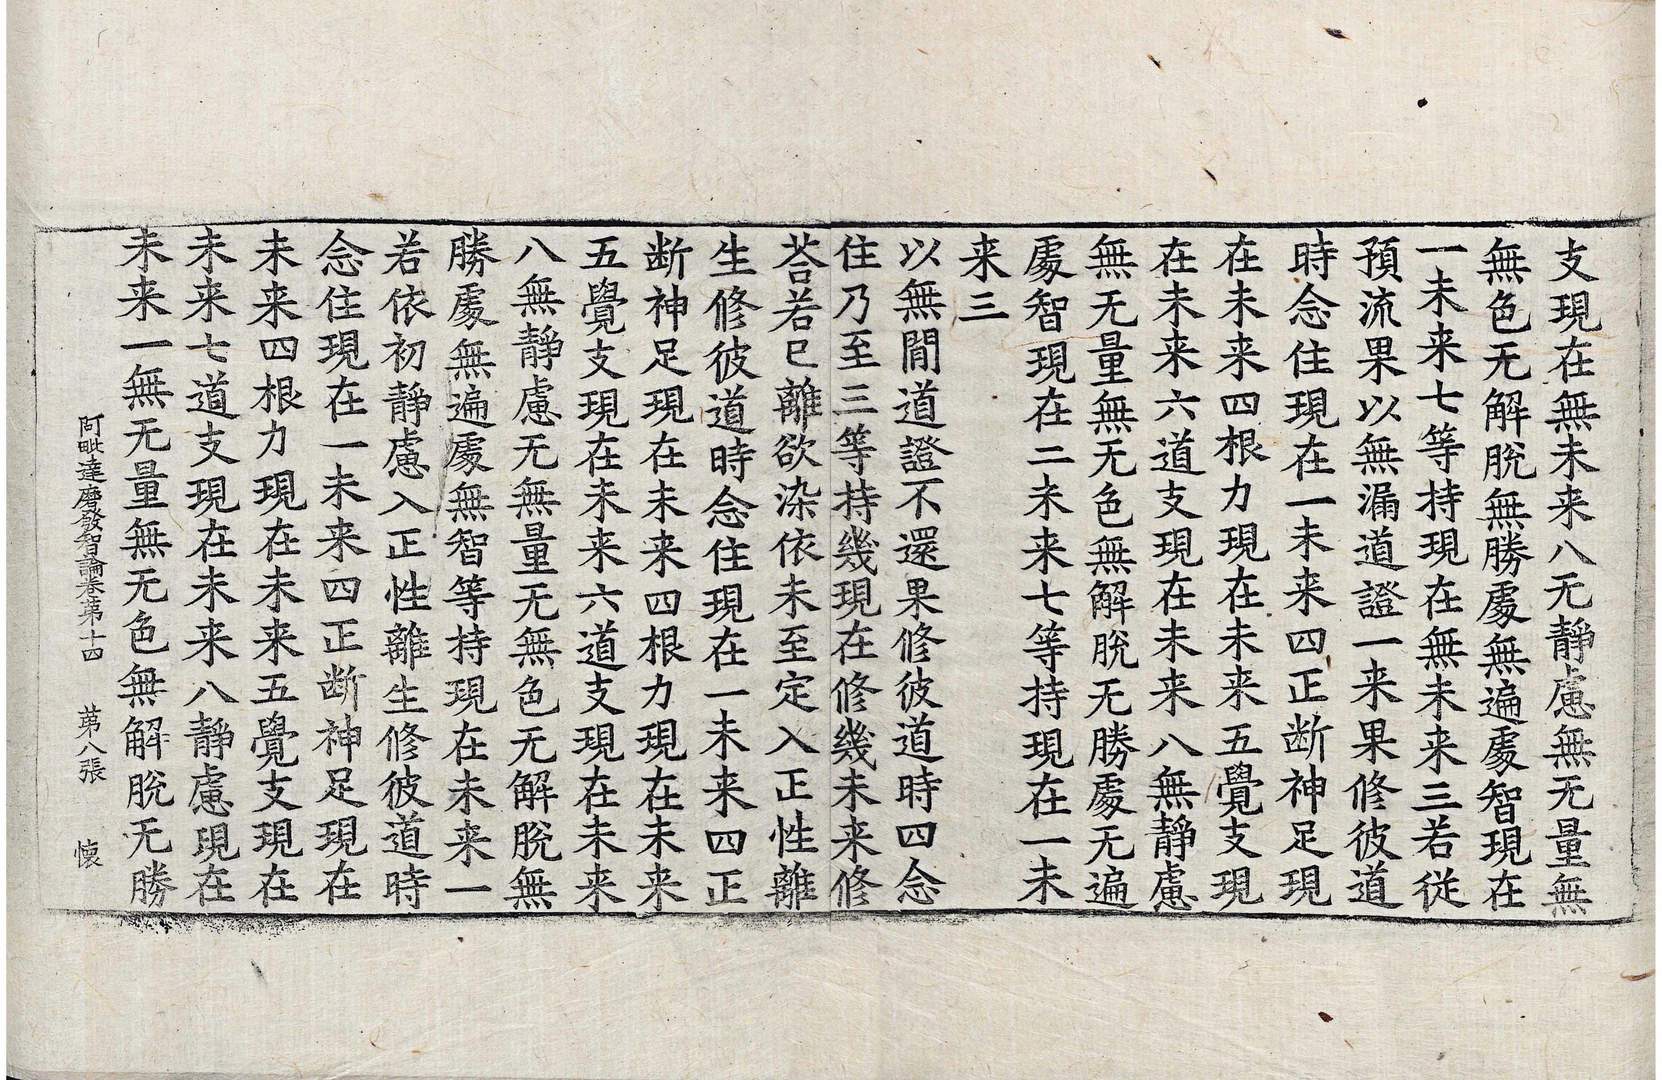 支現在無未来八无靜慮無无量無
無色无解脫無勝處無遍處智現在
一未来七等持現在無未来三若從
預流果以無漏道證一来果修彼道
時念住現在一未来四正断神足現
在未来四根力現在未来五覺支現
在未来六道支現在未来八無靜慮
無无量無无色無解脫无勝處无遍
處智現在二未来七等持現在一未
来三
以無間道證不還果修彼道時四念
住乃至三等持幾現在修幾未来修
荅若已離欲染依未至定入正性離
生修彼道時念住現在一未来四正
断神足現在未来四根力現在未来
五覺支現在未来六道支現在未来
八無靜慮无無量无無色无解脫無
勝處無遍處無智等持現在未来一
若依初靜慮入正性離生修彼道時
念住現在一未来四正断神足現在
未来四根力現在未来五覺支現在
未来七道支現在未来八靜慮現在
未来一無无量無无色無解脫无勝
阿毗達磨發智論卷第十四 第八張 懷